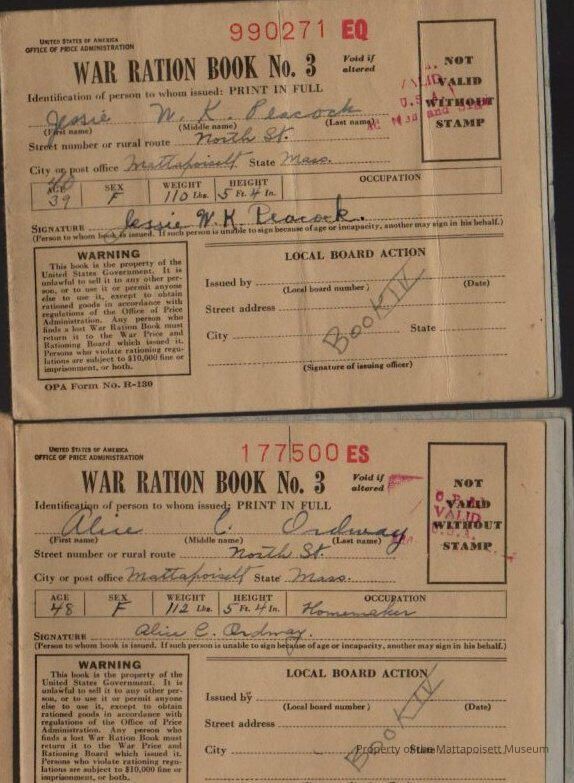 990271 EQ
UNITED STATES OF AMERICA
OFFICE OF PRICE ADMINISTRATION
WAR RATION BOOK No. 3
Void if altered
Identification of person to whom issued: PRINT IN FULL
Jessie W. K. Peacock
(First name) (Middle name) (Last name)
Street number or rural route North St.
City or post office Mattapoisett State Mass.
AGE SEX WEIGHT HEIGHT OCCUPATION
39 F 110 Lbs. 5 Ft. 4 In.
SIGNATURE Jessie W. K. Peacock.
(Person to whom book is issued. If such person is unable to sign because of age or incapacity, another may sign in his behalf.)
NOT
VALID
WITHOUT
STAMP
VALID
U.S.A.
WARNING
This book is the property of the
United States Government. It is
unlawful to sell it to any other per-
son, or to use it or permit anyone
else to use it, except to obtain
rationed goods in accordance with
regulations of the Office of Price
Administration. Any person who
finds a lost War Ration Book must
return it to the War Price and
Rationing Board which issued it.
Persons who violate rationing regu-
lations are subject to $10,000 fine or
imprisonment, or both.
OPA Form No. R-130
LOCAL BOARD ACTION
Issued by
(Local board number) (Date)
Street address
City State
(Signature of issuing officer)
BOOK IV
177500 ES
UNITED STATES OF AMERICA
OFFICE OF PRICE ADMINISTRATION
WAR RATION BOOK No. 3
Void if altered
Identification of person to whom issued: PRINT IN FULL
Alice C. Ordway
(First name) (Middle name) (Last name)
Street number or rural route North St.
City or post office Mattapoisett State Mass.
AGE SEX WEIGHT HEIGHT OCCUPATION
48 F 112 Lbs. 5 Ft. 4 In. Homemaker
SIGNATURE Alice C. Ordway.
(Person to whom book is issued. If such person is unable to sign because of age or incapacity, another may sign in his behalf.)
NOT
VALID
WITHOUT
STAMP
VALID
WARNING
This book is the property of the
United States Government. It is
unlawful to sell it to any other per-
son, or to use it or permit anyone
else to use it, except to obtain
rationed goods in accordance with
regulations of the Office of Price
Administration. Any person who
finds a lost War Ration Book must
return it to the War Price and
Rationing Board which issued it.
Persons who violate rationing regu-
lations are subject to $10,000 fine or
imprisonment, or both.
LOCAL BOARD ACTION
Issued by
(Local board number) (Date)
Street address
City State
BOOK IV
Property of the Mattapoisett Museum